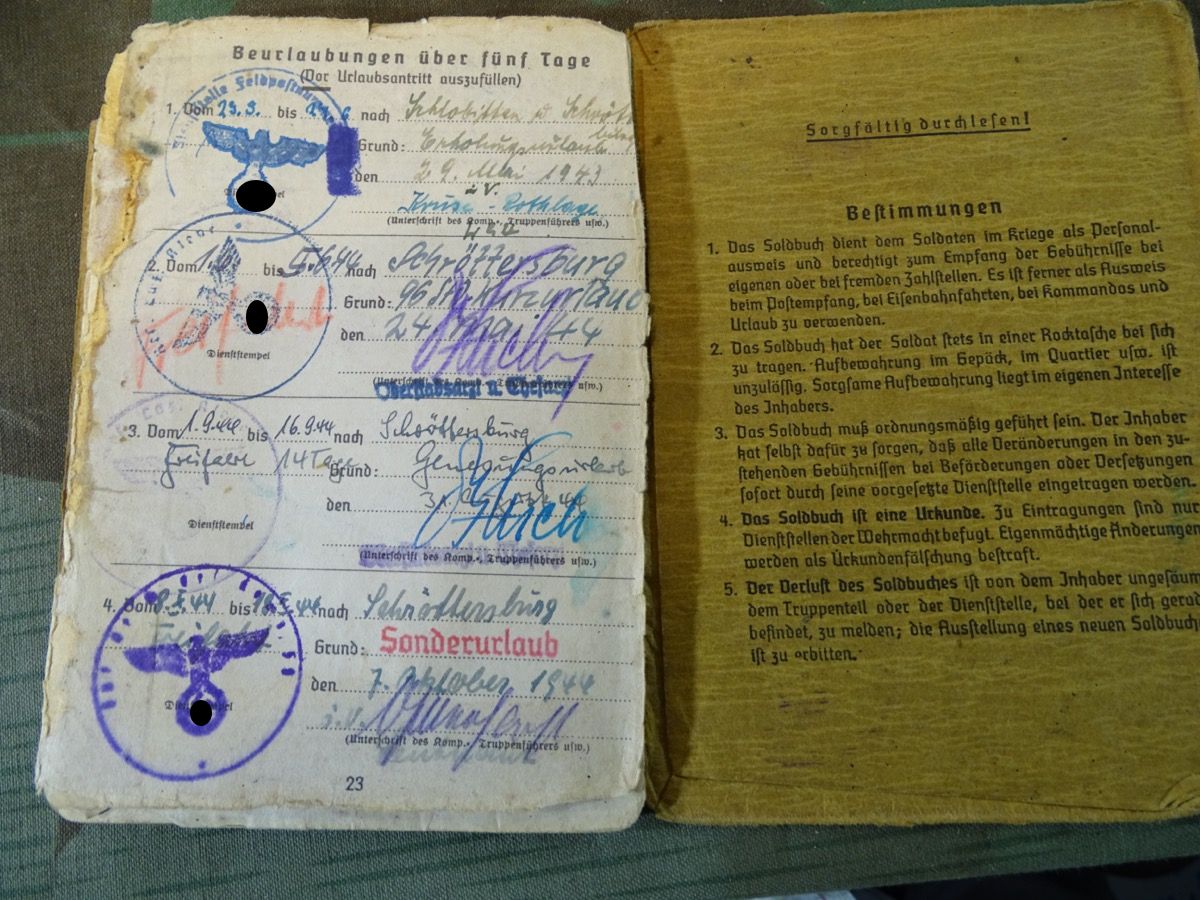 Beurlaubungen über fünf Tage
(Vor Urlaubsantritt auszufüllen)
1. Vom 29.5. bis nach Schlobitten
Grund: Erholungsurlaub
den 29. Mai 1943
i.V.
Dienststempel
(Unterschrift des Komp.-, Truppenführers usw.)
Vom bis 5.6.44 nach Schröttersburg
Grund: 96 Std. Kurzurlaub
den 24. Mai 44
Dienststempel
(Unterschrift des Komp.-, Truppenführers usw.)
Oberstabsarzt u. Chefarzt
3. Vom 1.9.44 bis 16.9.44 nach Schröttersburg
14 Tage Grund: Genesungsurlaub
den 31. August 44
Dienststempel
(Unterschrift des Komp.-, Truppenführers usw.)
4. Vom bis nach Schröttersburg
Grund: Sonderurlaub
den 7. Oktober 1944
i.V.
Dienststempel
(Unterschrift des Komp.-, Truppenführers usw.)
23
Sorgfältig durchlesen!
Bestimmungen
1. Das Soldbuch dient dem Soldaten im Kriege als Personal-
ausweis und berechtigt zum Empfang der Gebührnisse bei
eigenen oder bei fremden Zahlstellen. Es ist ferner als Ausweis
beim Postempfang, bei Eisenbahnfahrten, bei Kommandos und
Urlaub zu verwenden.
2. Das Soldbuch hat der Soldat stets in einer Rocktasche bei sich
zu tragen. Aufbewahrung im Gepäck, im Quartier usw. ist
unzulässig. Sorgsame Aufbewahrung liegt im eigenen Interesse
des Inhabers.
3. Das Soldbuch muß ordnungsmäßig geführt sein. Der Inhaber
hat selbst dafür zu sorgen, daß alle Veränderungen in den zu-
stehenden Gebührnissen bei Beförderungen oder Versetzungen
sofort durch seine vorgesetzte Dienststelle eingetragen werden.
4. Das Soldbuch ist eine Urkunde. Zu Eintragungen sind nur
Dienststellen der Wehrmacht befugt. Eigenmächtige Änderungen
werden als Urkundenfälschung bestraft.
5. Der Verlust des Soldbuches ist von dem Inhaber ungesäum
dem Truppenteil oder der Dienststelle, bei der er sich gerad
befindet, zu melden; die Ausstellung eines neuen Soldbuch
ist zu erbitten.